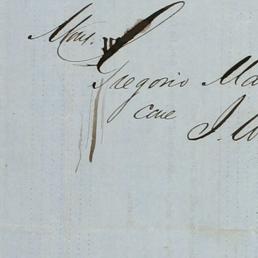 Mons.
Gregorio Ma
care
J.